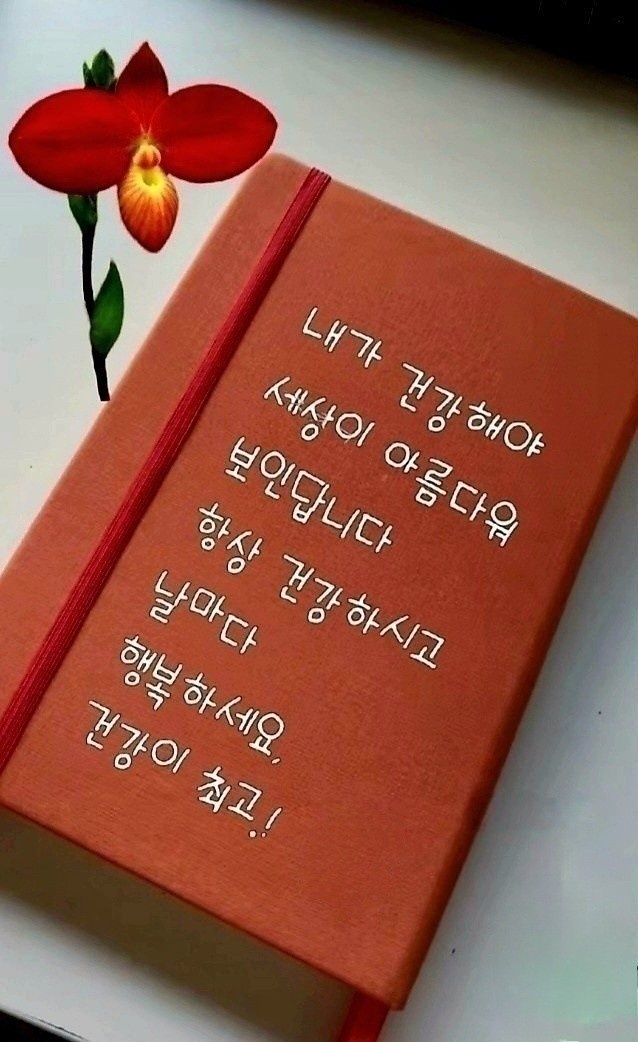 내가 건강해야
세상이 아름다워
보인답니다
항상 건강하시고
날마다
행복하세요,
건강이 최고!